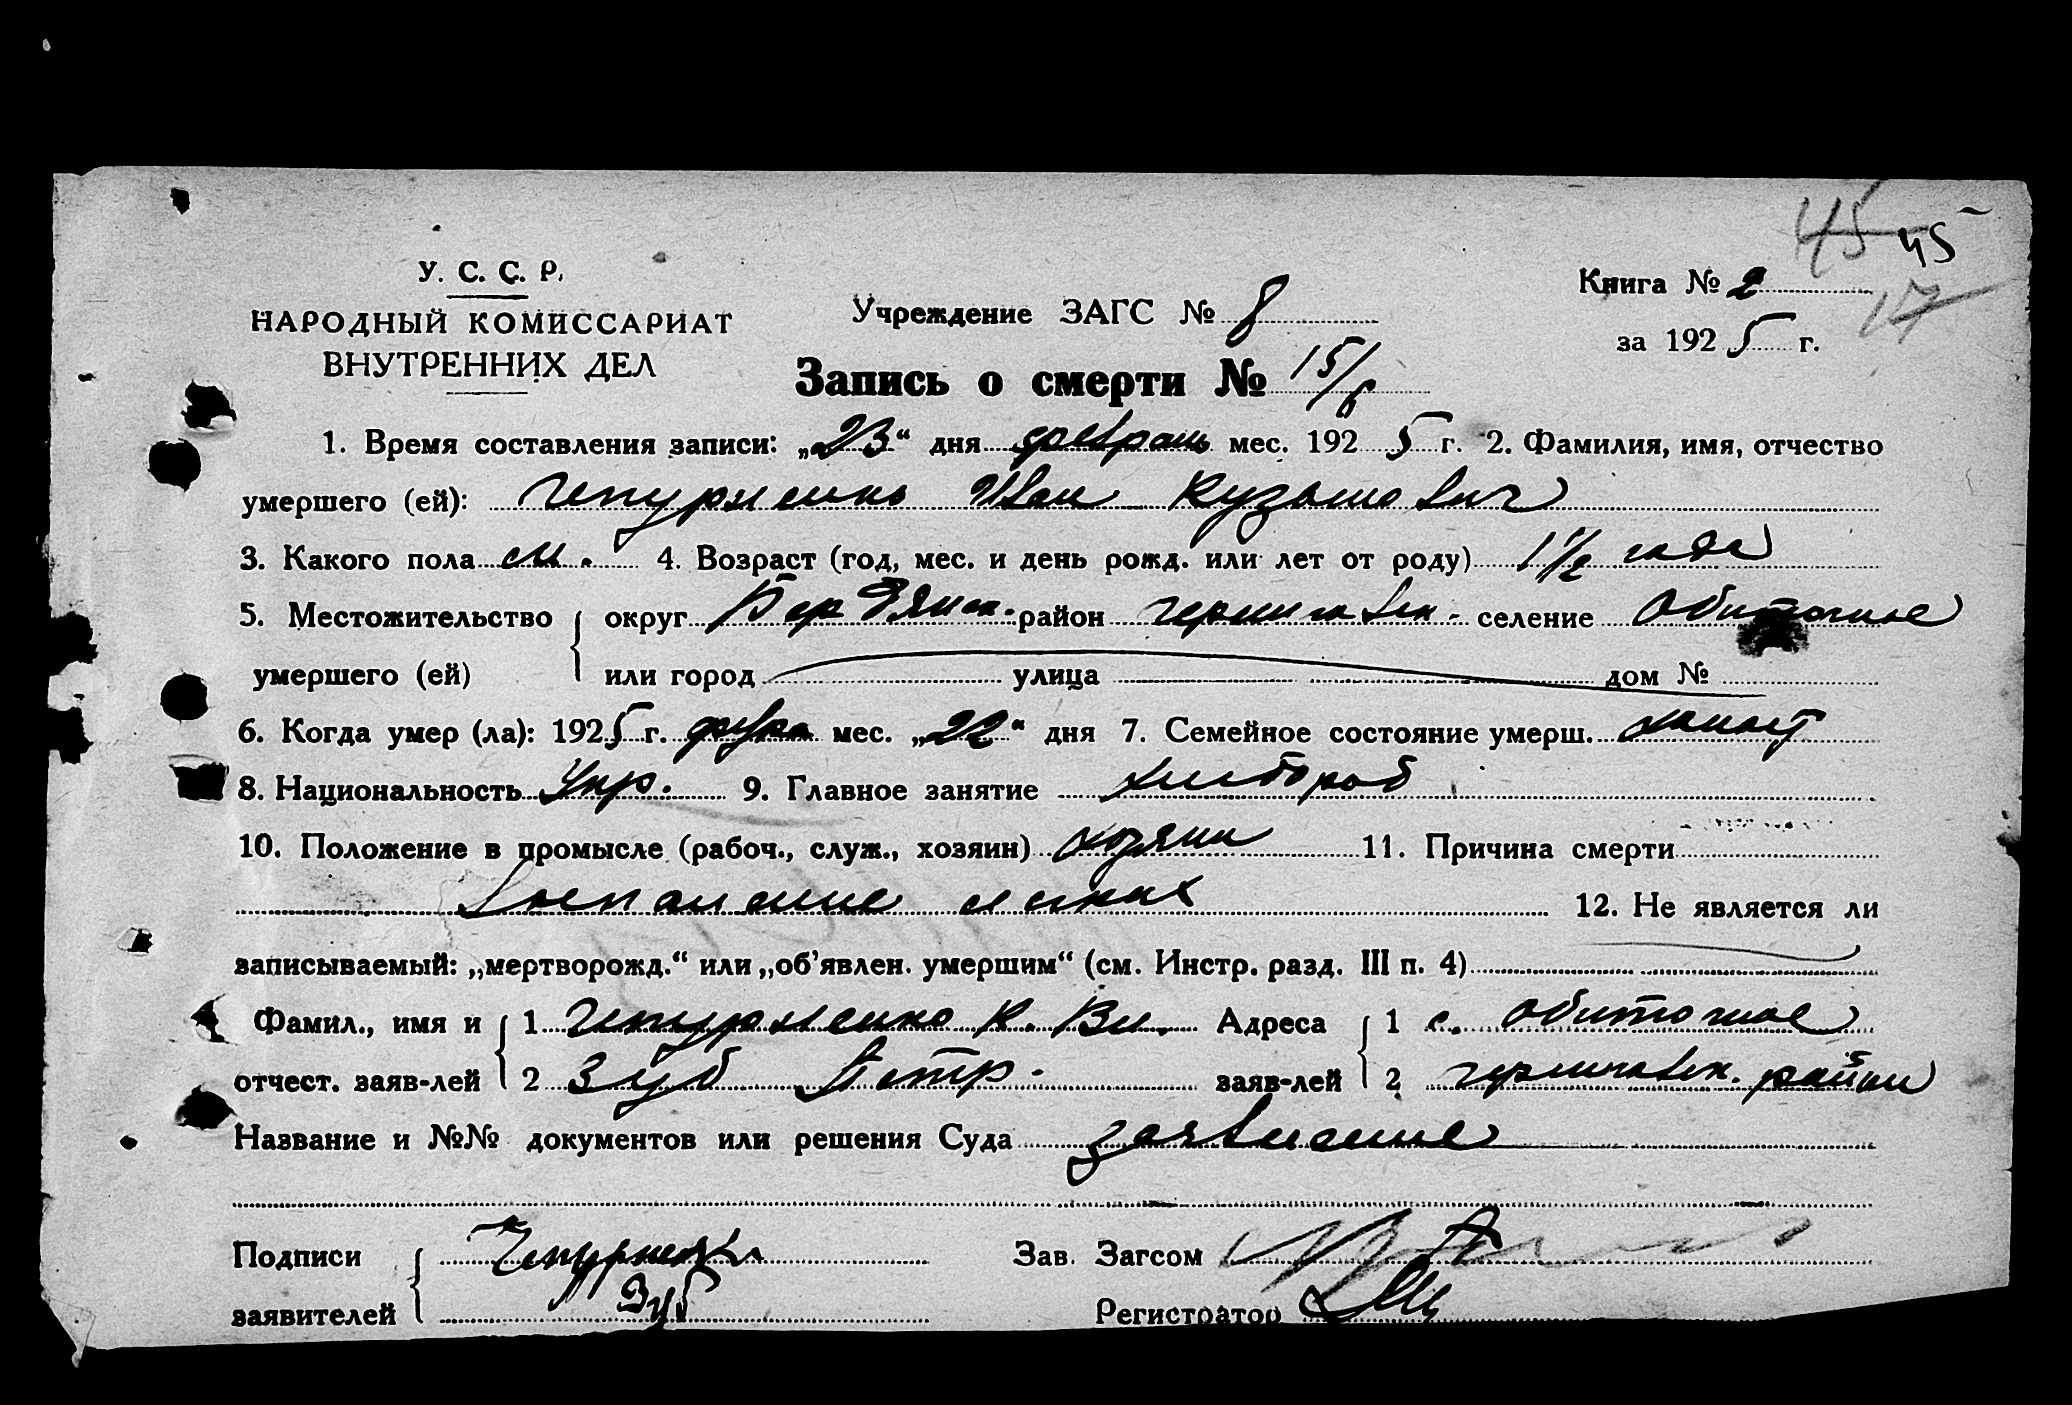 45 45
У. С. С. Р.
НАРОДНЫЙ КОМИССАРИАТ
ВНУТРЕННИХ ДЕЛ
Учреждение ЗАГС № 8
Книга № 2
17
за 1925 г.
Запись о смерти № 15/6
1. Время составления записи: „23“ дня февраль мес. 1925 г. 2. Фамилия, имя, отчество
умершего (ей): Чепурненко Иван Кузьмович
3. Какого пола м. 4. Возраст (год, мес. и день рожд. или лет от роду) 1 1/2 года
5. Местожительство округ Бердянск. район Черниговск- селение Обиточное
умершего (ей) или город улица дом №
6. Когда умер (ла): 1925 г. февра мес. „22“ дня 7. Семейное состояние умерш. холост
8. Национальность Укр. 9. Главное занятие хлебороб
10. Положение в промысле (рабоч., служ., хозяин) хозяин 11. Причина смерти
воспаление легких 12. Не является ли
записываемый: „мертворожд.“ или „об’явлен. умершим“ (см. Инстр. разд. III п. 4)
Фамил., имя и 1 Чепурненко К. Ви. Адреса 1 с. Обиточное
отчест. заяв-лей 2 Зуб Петр. заяв-лей 2 Черниговск. район
Название и №№ документов или решения Суда заявление
Подписи Чепурненко Зав. Загсом
заявителей Зуб Регистратор